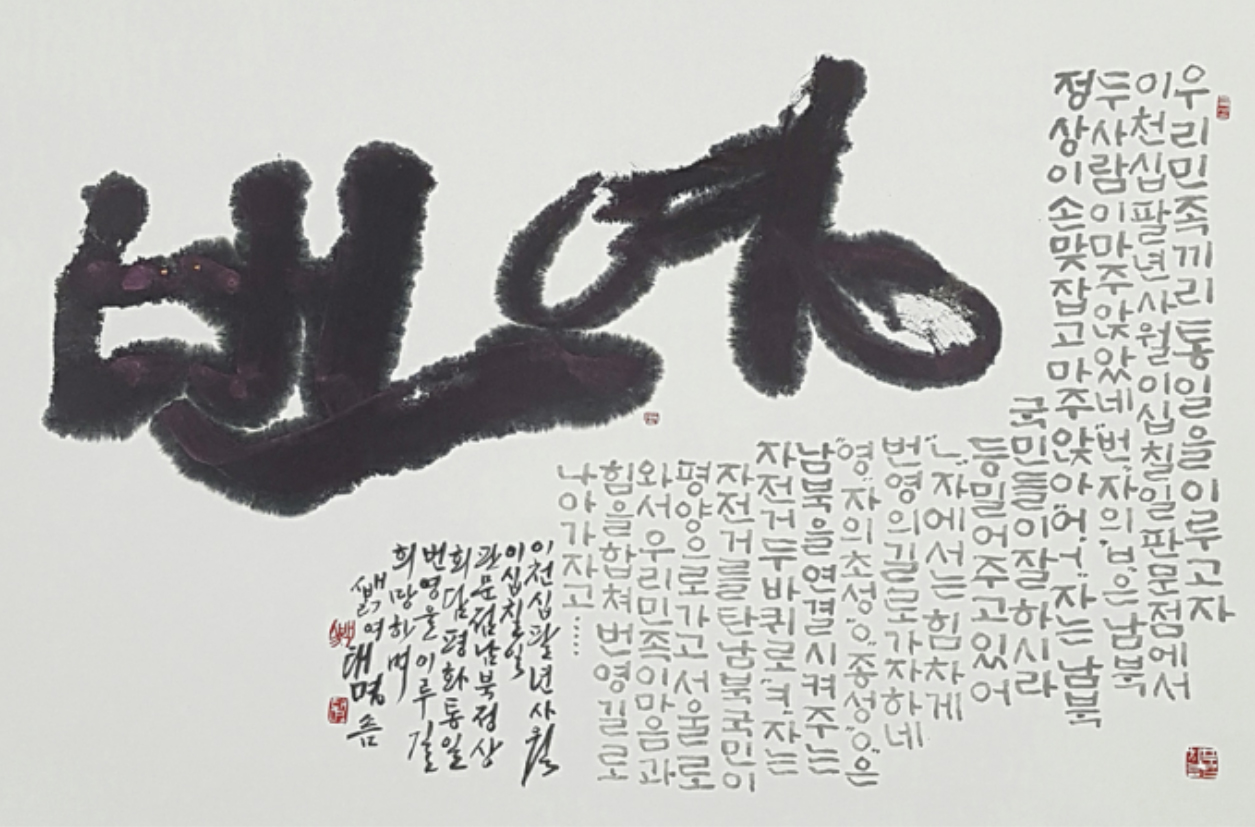 번영
우리민족끼리통일을이루고자
이천십팔년사월이십칠일판문점에서
두사람이마주앉았네"번"자의"ㅂ"은남북
정상이손맞잡고마주앉아"ㅓ"자는남북
국민들이잘하시라
등밀어주고있어
"ㄴ"자에서는힘차게
번영의길로가자하네
"영"자의초성"ㅇ"종성"ㅇ"은
남북을연결시켜주는
자전거두바퀴로"ㅕ"자는
자전거를탄남북국민이
평양으로가고서울로
와서우리민족이마음과
힘을합쳐번영길로
나아가자고.....
이천십팔년사월
이십칠일
판문점남북정상
회담평화통일
번영을이루길
희망하며
여대명씀